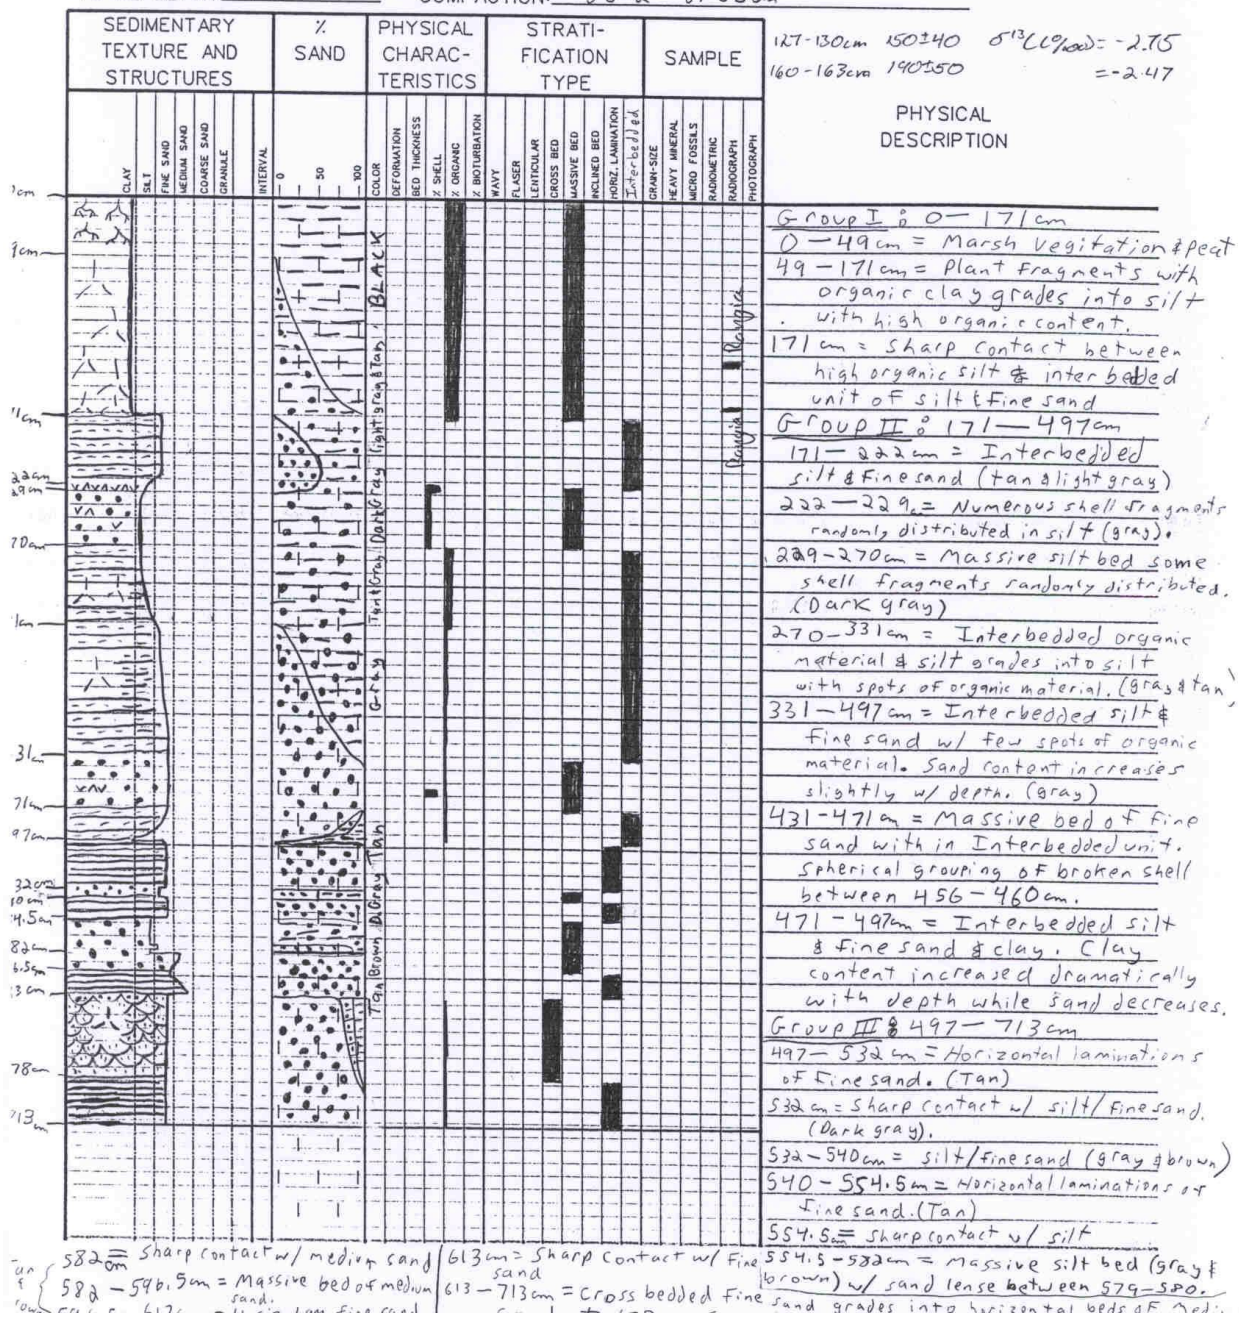 SEDIMENTARY TEXTURE AND STRUCTURES
% SAND
PHYSICAL CHARAC-TERISTICS
STRATI-FICATION TYPE
SAMPLE
127-130cm 150±40
160-163cm 190±50
= -2.75
= -2.47
PHYSICAL DESCRIPTION
CLAY
SILT
FINE SAND
MEDIUM SAND
COARSE SAND
GRANULE
INTERVAL
0
50
100
COLOR
DEFORMATION
BED THICKNESS
% SHELL
% ORGANIC
% BIOTURBATION
WAVY
FLASER
LENTICULAR
CROSS BED
MASSIVE BED
INCLINED BED
HORIZ. LAMINATION
Interbedded
GRAIN-SIZE
HEAVY MINERAL
MICRO FOSSILS
RADIOMETRIC
RADIOGRAPH
PHOTOGRAPH
BLACK
light gray & tan
Dark Gray
Tan & Gray
Gray
Tan
D.Gray
Brown
Tan
Group I : 0 — 171cm
0 — 49cm = Marsh vegitation & peat
49 — 171cm = Plant fragments with
organic clay grades into silt
with high organic content.
171 cm = Sharp contact between
high organic silt & interbedded
unit of silt & fine sand
Group II : 171 — 497cm
171 — 222cm = Interbedded
silt & fine sand (tan & light gray)
222 — 229 = Numerous shell fragments
randomly distributed in silt (gray).
229-270cm = Massive silt bed some
shell fragments randomly distributed.
(Dark gray)
270-331cm = Interbedded organic
material & silt grades into silt
with spots of organic material. (gray & tan)
331-497cm = Interbedded silt &
fine sand w/ few spots of organic
material. Sand content increases
slightly w/ depth. (gray)
431-471cm = Massive bed of fine
sand with in Interbedded unit.
Spherical grouping of broken shell
between 456-460cm.
471-497cm = Interbedded silt
& fine sand & clay. Clay
content increased dramatically
with depth while sand decreases.
Group III : 497-713cm
497-532cm = Horizontal laminations
of fine sand. (Tan)
532cm = Sharp contact w/ silt/fine sand.
(Dark gray).
532-540cm = silt/fine sand (gray & brown)
540-554.5cm = Horizontal laminations of
fine sand. (Tan)
554.5cm = sharp contact w/ silt
554.5-582cm = Massive silt bed (gray &
brown) w/ sand lense between 579-580.
582cm = Sharp contact w/ medium sand
582-596.5cm = Massive bed of medium sand.
613cm = Sharp contact w/ fine sand
613-713cm = Cross bedded fine
sand grades into horizontal beds of